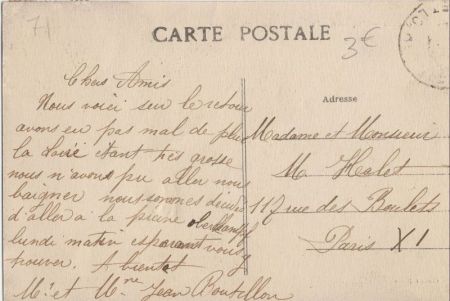 71
CARTE POSTALE
3€
Adresse
Chers Amis
Nous voici sur le retour
avons eu pas mal de pluie
la Loire étant très grosse
nous n'avons pu aller nous
baigner nous sommes décidés
d'aller à la piscine
lundi matin espérant vous y
trouver. A bientôt
Mr et Mme Jean
Madame et Monsieur
M Halet
117 rue des Boulets
Paris XI